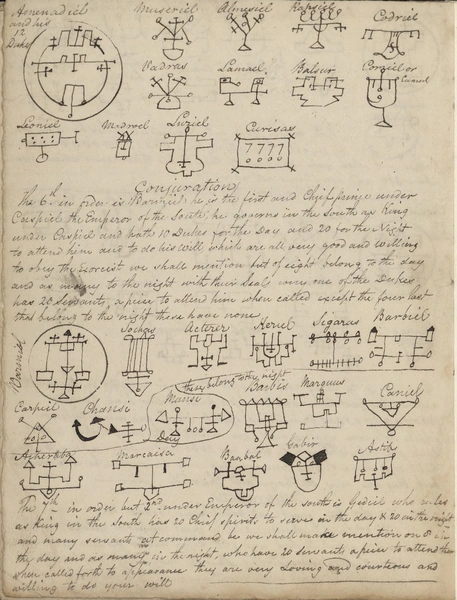 Asmenadiel Museriel Almesiel Rapsiel Codriel
and his
12
Dukes
Vadras Lamael Balsur
Leoniel Luziel Curisas
7777
Conjuration
The 6th in order is he is the first and Chief prince under
Caspiel the Emperor of the South, he governs in the South as King
under Caspiel and hath 10 Dukes for the Day and 20 for the Night
to attend him and to do his Will which are all very good and Willing
to obey the exorcist we shall mention but of eight belong to the day
and as many to the night with their Seals one of the Dukes
has 20 servants apiece to attend him when called except the four last
that belong to the night these have none
Acterer Keriel Sigaras Barbiel
these belong to the night
Carpiel Chansi Mansi Barbis Marquus Caniel
Day
Acreba Marcaisa Baabal Gabir Astib
The 7th in order but 2nd under Emperor of the south is Gediel who rules
as king in the South has 20 Chief spirits to serve in the day & 20 in the night
and many servants at command he we shall make mention on 8 in
the day and as many in the night who have 20 servants apiece to attend them
when called forth to appearance they are very Loving and courteous and
willing to do your will